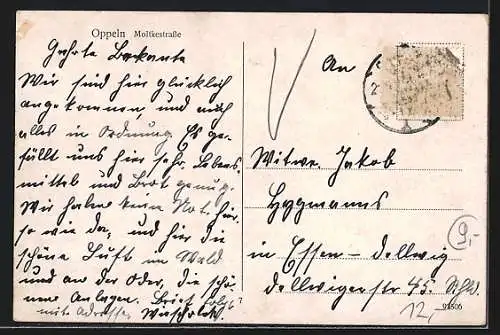 Oppeln Moltkestraße
Geehrte Bekannte
Wir sind hier glücklich
angekommen und auch
alles in Ordnung. Es ge-
fällt uns hier sehr. Lebens-
mittel und Brot genug.
Wir haben keine Not. hier
so wie da, und hier die
schöne Luft im Wald
und an der Oder, die schö-
nen Anlagen. Brief folgt
mit Adresse.
An
Witwe Jakob
in Essen-Dellwig
Dellwigerstr 45.
9,-
12,-